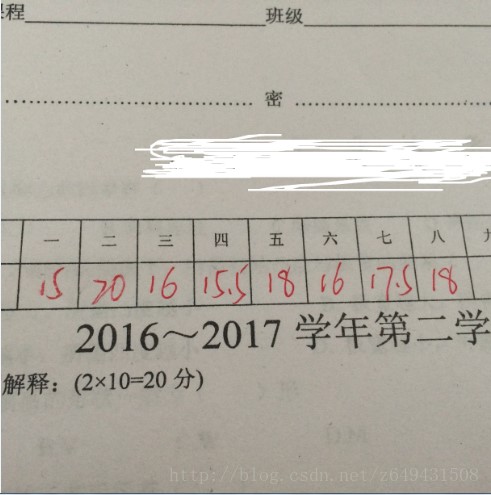 课程 班级
密
一 二 三 四 五 六 七 八 九
15 20 16 15.5 18 16 17.5 18
2016～2017 学年第二学
解释：(2×10=20 分)
http://blog.csdn.net/z649431508